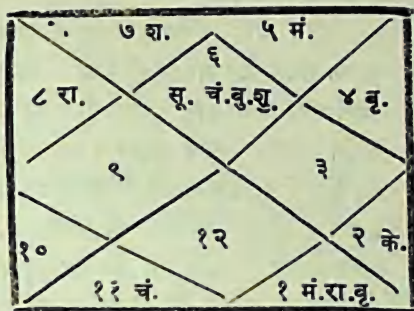 ७ श. ५ मं.
६
८ रा. सू. चं.बु.शु. ४ बृ.
९ ३
१० १२ २ के.
११ चं. १ मं.रा.बृ.